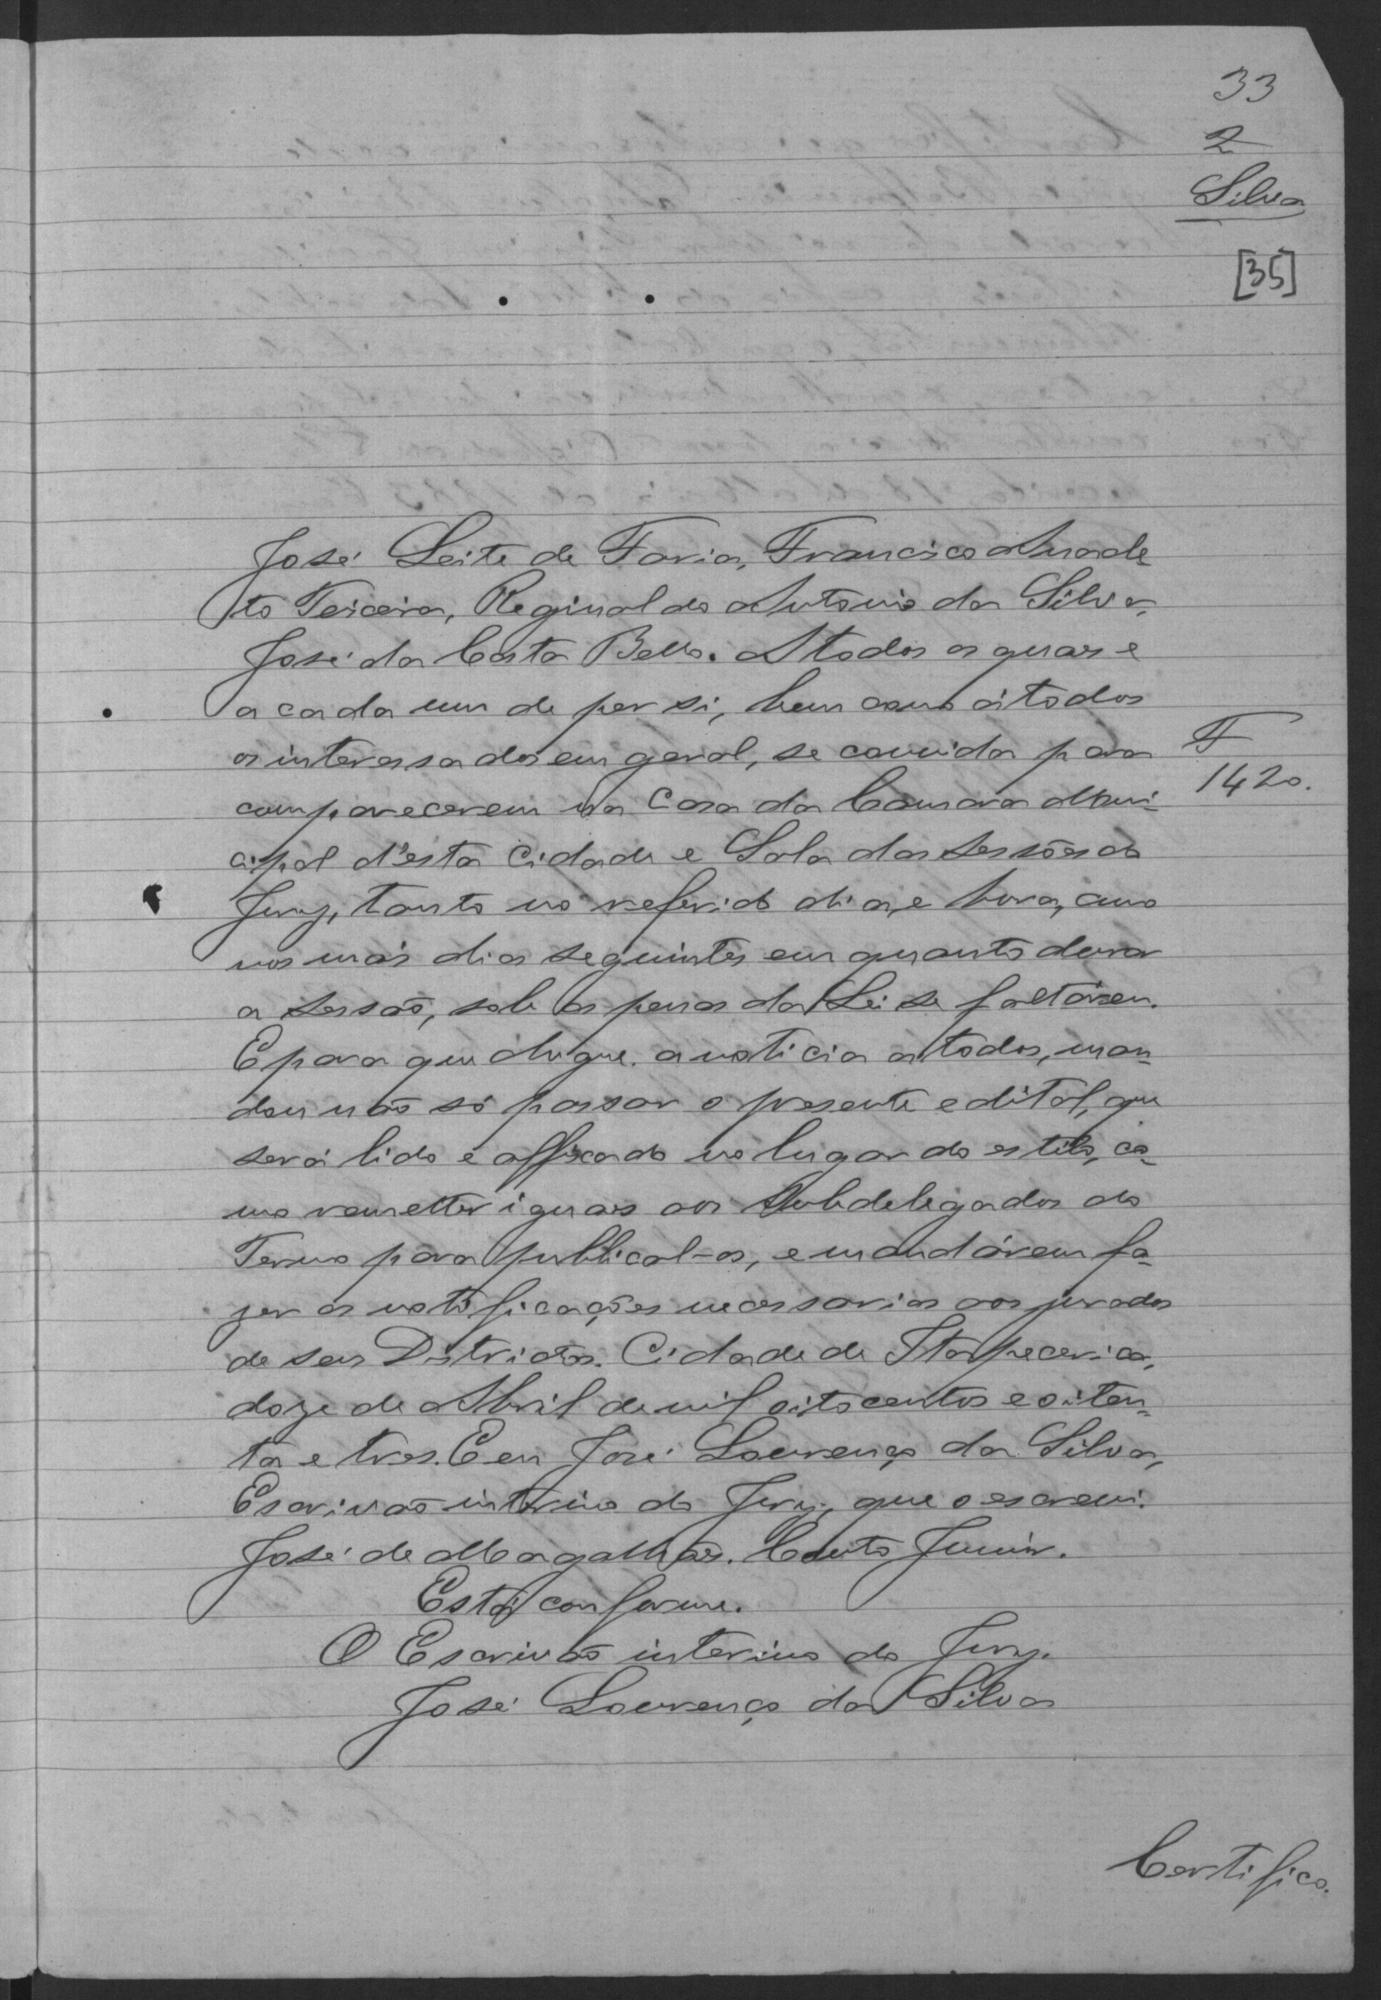 33
2
Silva
[35]
José Leite de Faria, Francisco Anacle
to Teixeira, Reginaldo Antonio da Silva,
José da Costa Bello. A todos os quaes e
a cada um de per si, bem como á todos
os interessados em geral, se convida para
comparecerem na Casa da Camara Muni-
cipal d'esta Cidade e Sala das Sessões do
Jury, tanto no referido dia, e hora, como
nos mais dias seguintes em quanto durar
a sessão, sob as penas da Lei se faltárem.
E para que chegue a noticia a todos, man-
dou não só passar o presente edital, que
será lido e affixado no lugar do estilo, co-
mo remetter iguaes aos Subdelegados do
Termo para publical-os, e mandárem fa-
zer as notificações necessarias aos jurados
de seus Districtos. Cidade de Itapecerica,
doze de Abril de mil oitocentos e oiten-
ta e tres. E eu José Lourenço da Silva,
Escrivão interino do Jury, que o escrevi.
José de Magalhães. Couto Junior.
Está conforme.
O Escrivão interino do Jury.
José Lourenço da Silva
1420.
Certifico.